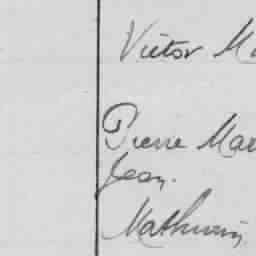 Victor
Pierre Mar
Jean.
Mathurin